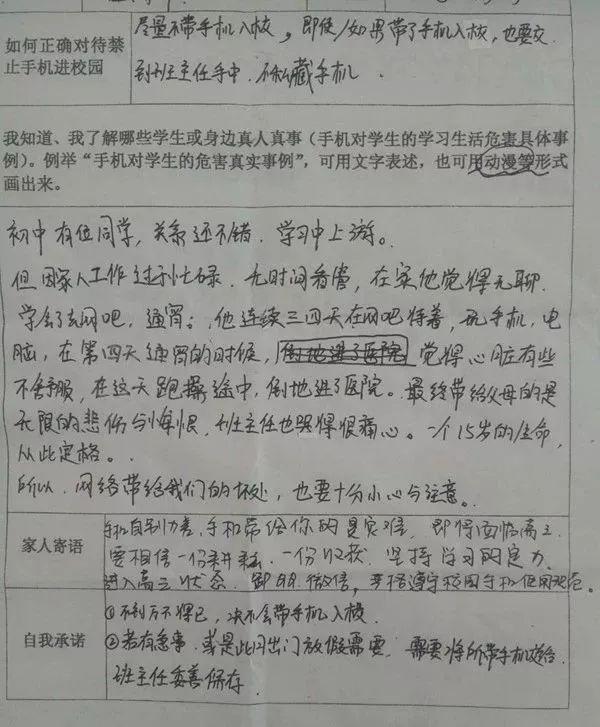 如何正确对待禁
止手机进校园
尽量不带手机入校，即使/如果带了手机入校，也要交
到班主任手中，不私藏手机．
我知道、我了解哪些学生或身边真人真事（手机对学生的学习生活危害具体事
例）。例举“手机对学生的危害真实事例”，可用文字表述，也可用动漫等形式
画出来。
初中有位同学，关系还不错．学习中上游。
但因家人工作过于忙碌．无时间看管，在家他觉得无聊．
学会了去网吧，通宵；他连续三四天在网吧待着，玩手机，电
脑，在第四天通宵的时候，倒地进了医院 觉得心脏有些
不舒服，在这天跑操途中，倒地进了医院。最终带给父母的是
无限的悲伤与悔恨，班主任也哭得很痛心。一个15岁的生命，
从此定格。
所以．网络带给我们的坏处，也要十分小心与注意。
家人寄语
自制力差，手机带给你的是灾难．即将面临高三
要相信一份耕耘．一份收获．坚持学习的定力．
进入高三状态．卸QQ．微信，严格遵守校园手机使用规范。
自我承诺
①不到万不得已，决不会带手机入校．
②若有急事．或是出门放假需要．需要将所带手机送给
班主任妥善保存．